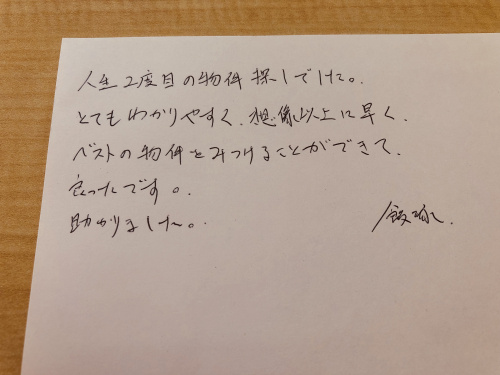 人生2度目の物件探しでした。
とてもわかりやすく、想像以上に早く、
ベストの物件をみつけることができて、
良ったです。
助かりました。